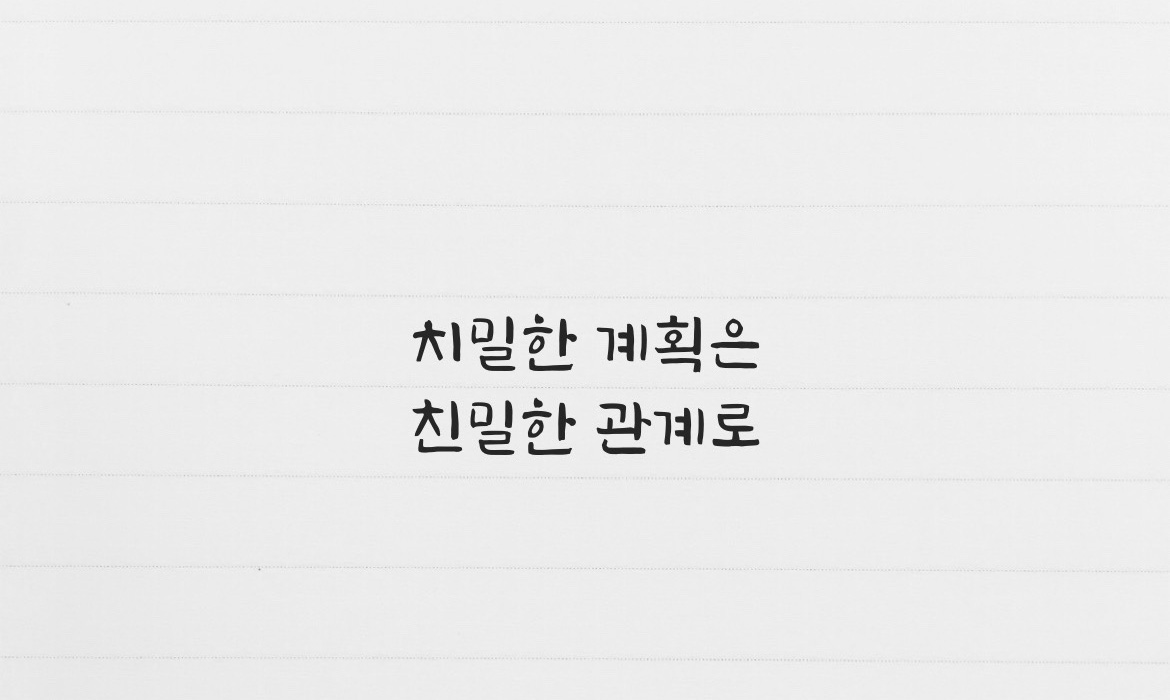 치밀한 계획은
친밀한 관계로